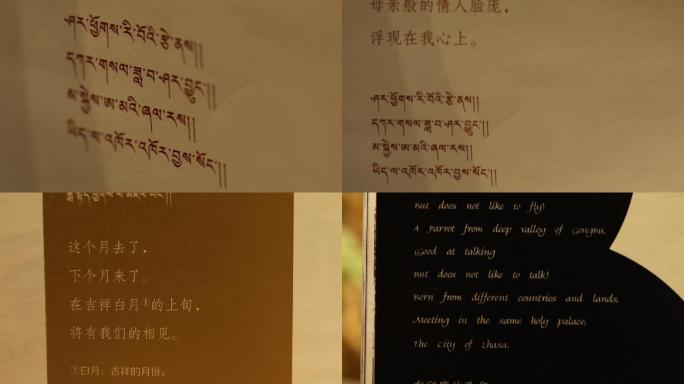 ཤར་ཕྱོགས་རི་བོའི་རྩེ་ནས།།
དཀར་གསལ་ཟླ་བ་ཤར་བྱུང་།།
མ་སྐྱེས་ཨ་མའི་ཞལ་རས།།
ཡིད་ལ་འཁོར་འཁོར་བྱས་སོང་།།
母亲般的情人脸庞,
浮现在我心上。
ཤར་ཕྱོགས་རི་བོའི་རྩེ་ནས།།
དཀར་གསལ་ཟླ་བ་ཤར་བྱུང་།།
མ་སྐྱེས་ཨ་མའི་ཞལ་རས།།
ཡིད་ལ་འཁོར་འཁོར་བྱས་སོང་།།
这个月去了,
下个月来了。
在吉祥白月①的上旬,
将有我们的相见。
①白月:吉祥的月份。
But does not like to fly!
A Parrot from deep valley of Gongbu,
(Good at talking
But does not like to talk)
Born from different countries and lands,
Meeting in the same holy palace,
The City of Lhasa.